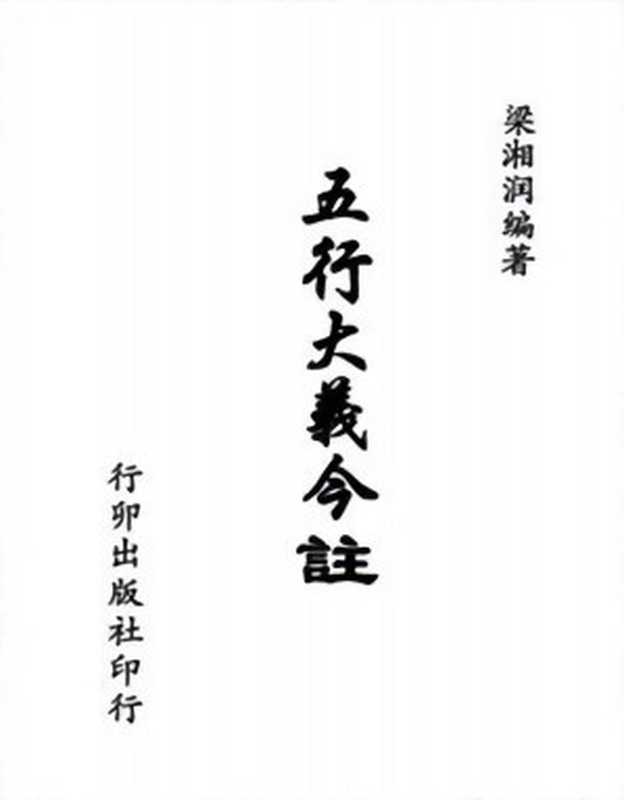 梁湘润编著
五行大義今註
行卯出版社印行